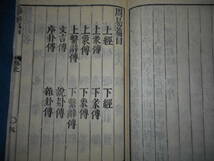 周易篇目
上經
下經
上彖傳
下彖傳
上象傳
下象傳
上繫辭傳
下繫辭傳
文言傳
說卦傳
序卦傳
雜卦傳